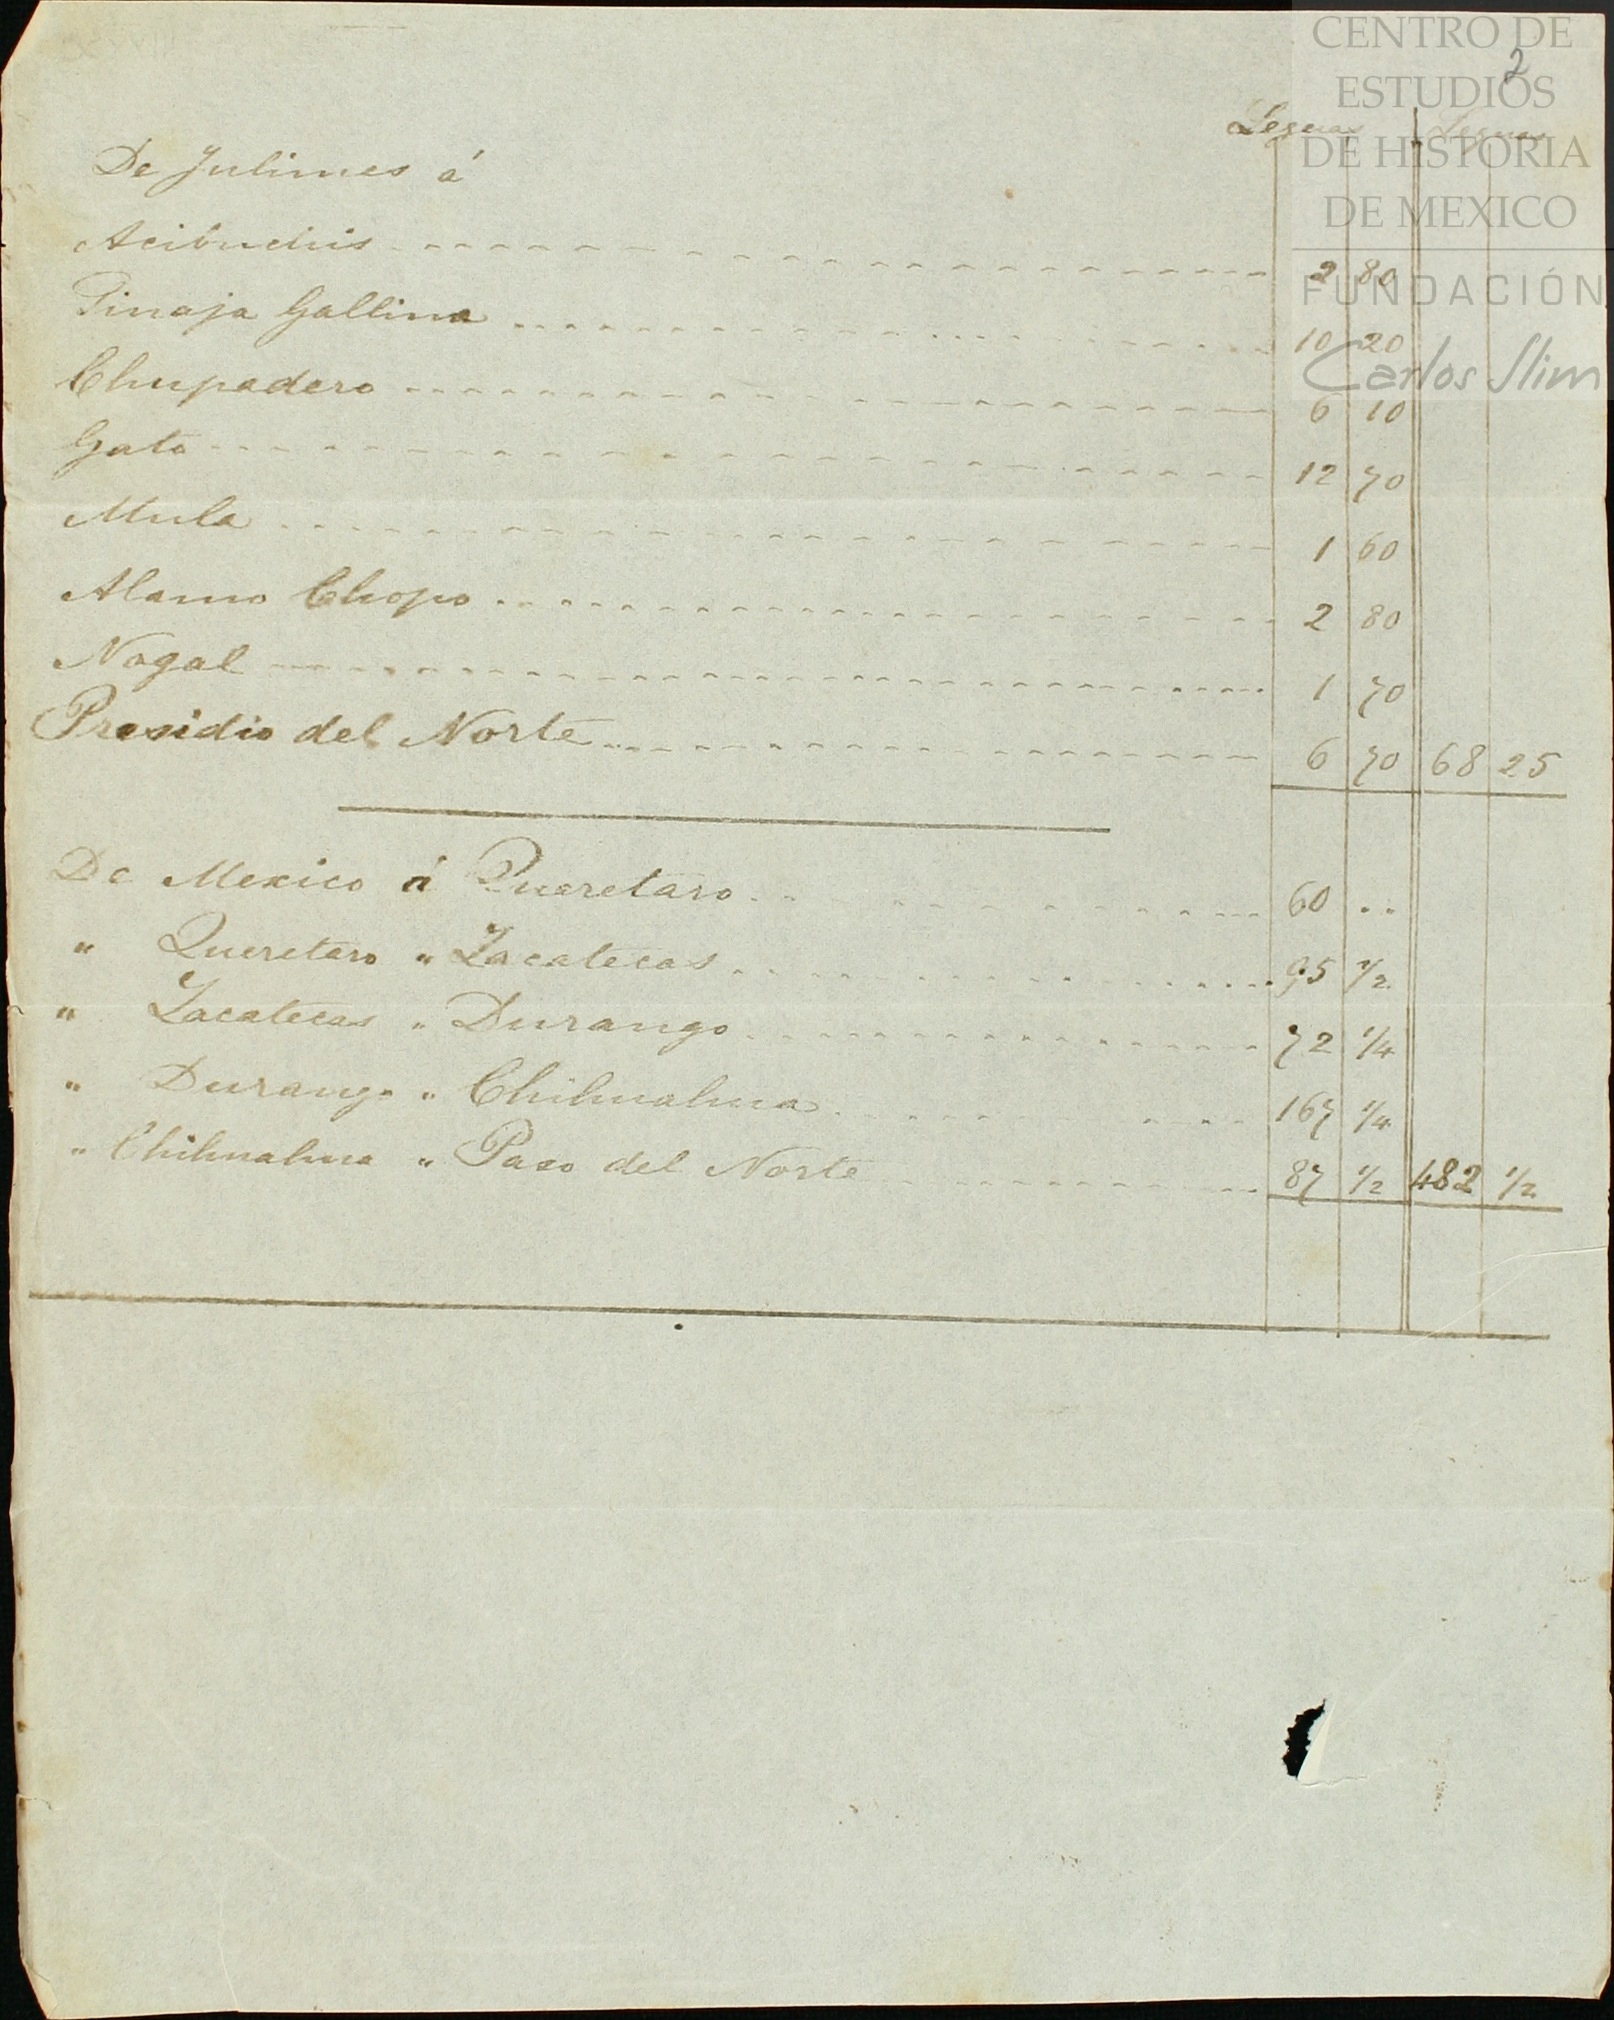 CENTRO DE
ESTUDIOS
DE HISTORIA
DE MEXICO
FUNDACIÓN
Carlos Slim
2
Leguas Leguas
De Julimes á
Acibuchis 2 80
Tinaja Gallina 10 20
Chupadero 6 10
Gato 12 70
Mula 1 60
Alamo Chopo 2 80
Nogal 1 70
Presidio del Norte 6 70 68 25
De Mexico á Queretaro 60 ..
" Queretaro " Zacatecas 95 1/2
" Zacatecas " Durango 72 1/4
" Durango " Chihuahua 167 1/4
" Chihuahua " Paso del Norte 87 1/2 482 1/2